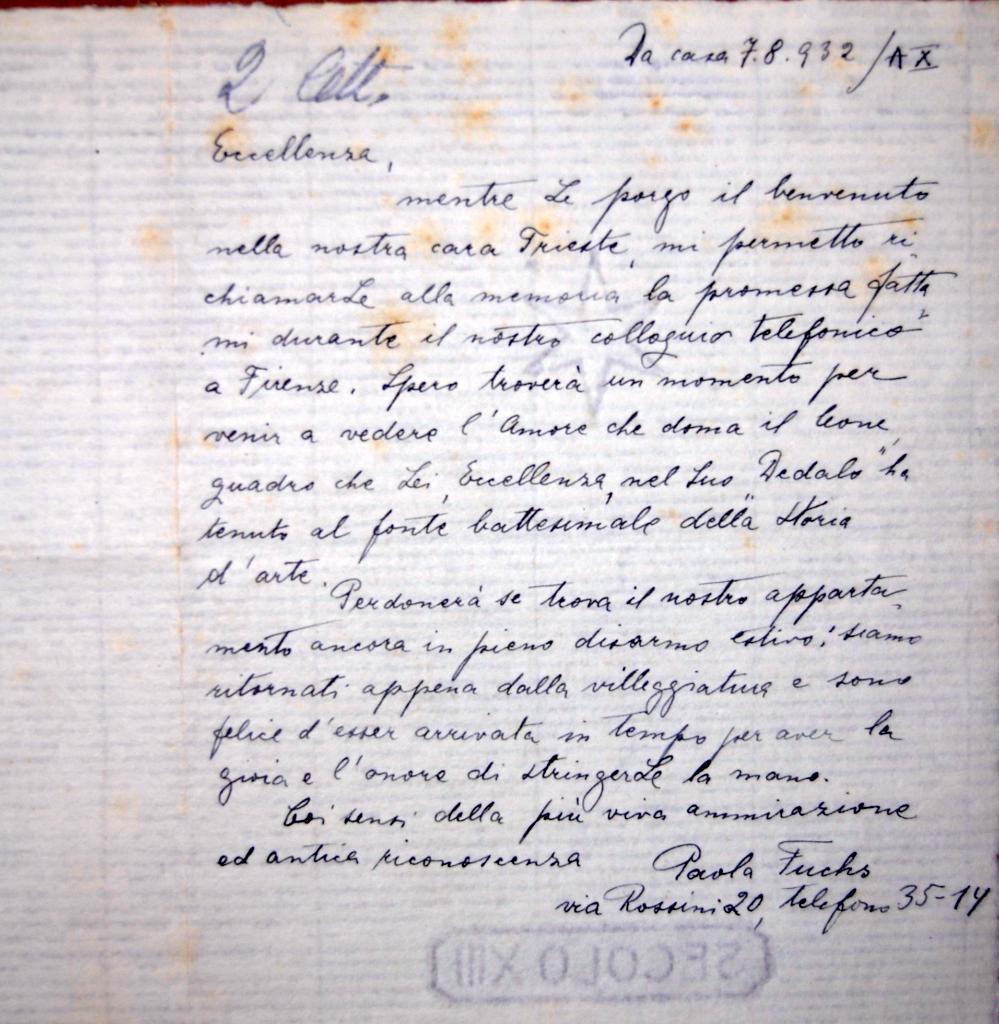 Da casa 7.8.932 /A X
2 Lett.
Eccellenza,
mentre Le porgo il benvenuto
nella nostra cara Trieste, mi permetto ri-
chiamarLe alla memoria la promessa fatta-
mi durante il nostro colloquio telefonico
a Firenze. Spero troverà un momento per
venir a vedere l'Amore che doma il leone,
quadro che Lei, Eccellenza, nel Suo "Dedalo" ha
tenuto al fonte battesimale della storia
d'arte.
Perdonerà se trova il nostro apparta-
mento ancora in pieno disarmo estivo: siamo
ritornati appena dalla villeggiatura e sono
felice d'esser arrivata in tempo per aver la
gioia e l'onore di stringerLe la mano.
Coi sensi della più viva ammirazione
ed antica riconoscenza
Paola Fuchs
via Rossini 20, telefono 35-14
SECOLO XIII